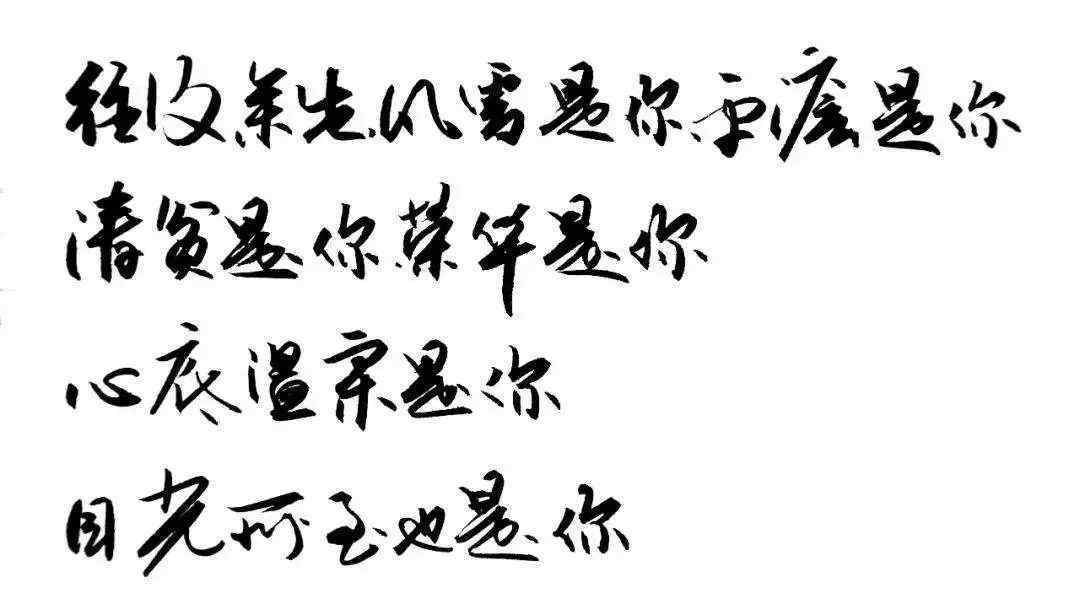 往后余生风雪是你平淡是你
清贫是你荣华是你
心底温柔是你
目光所至也是你